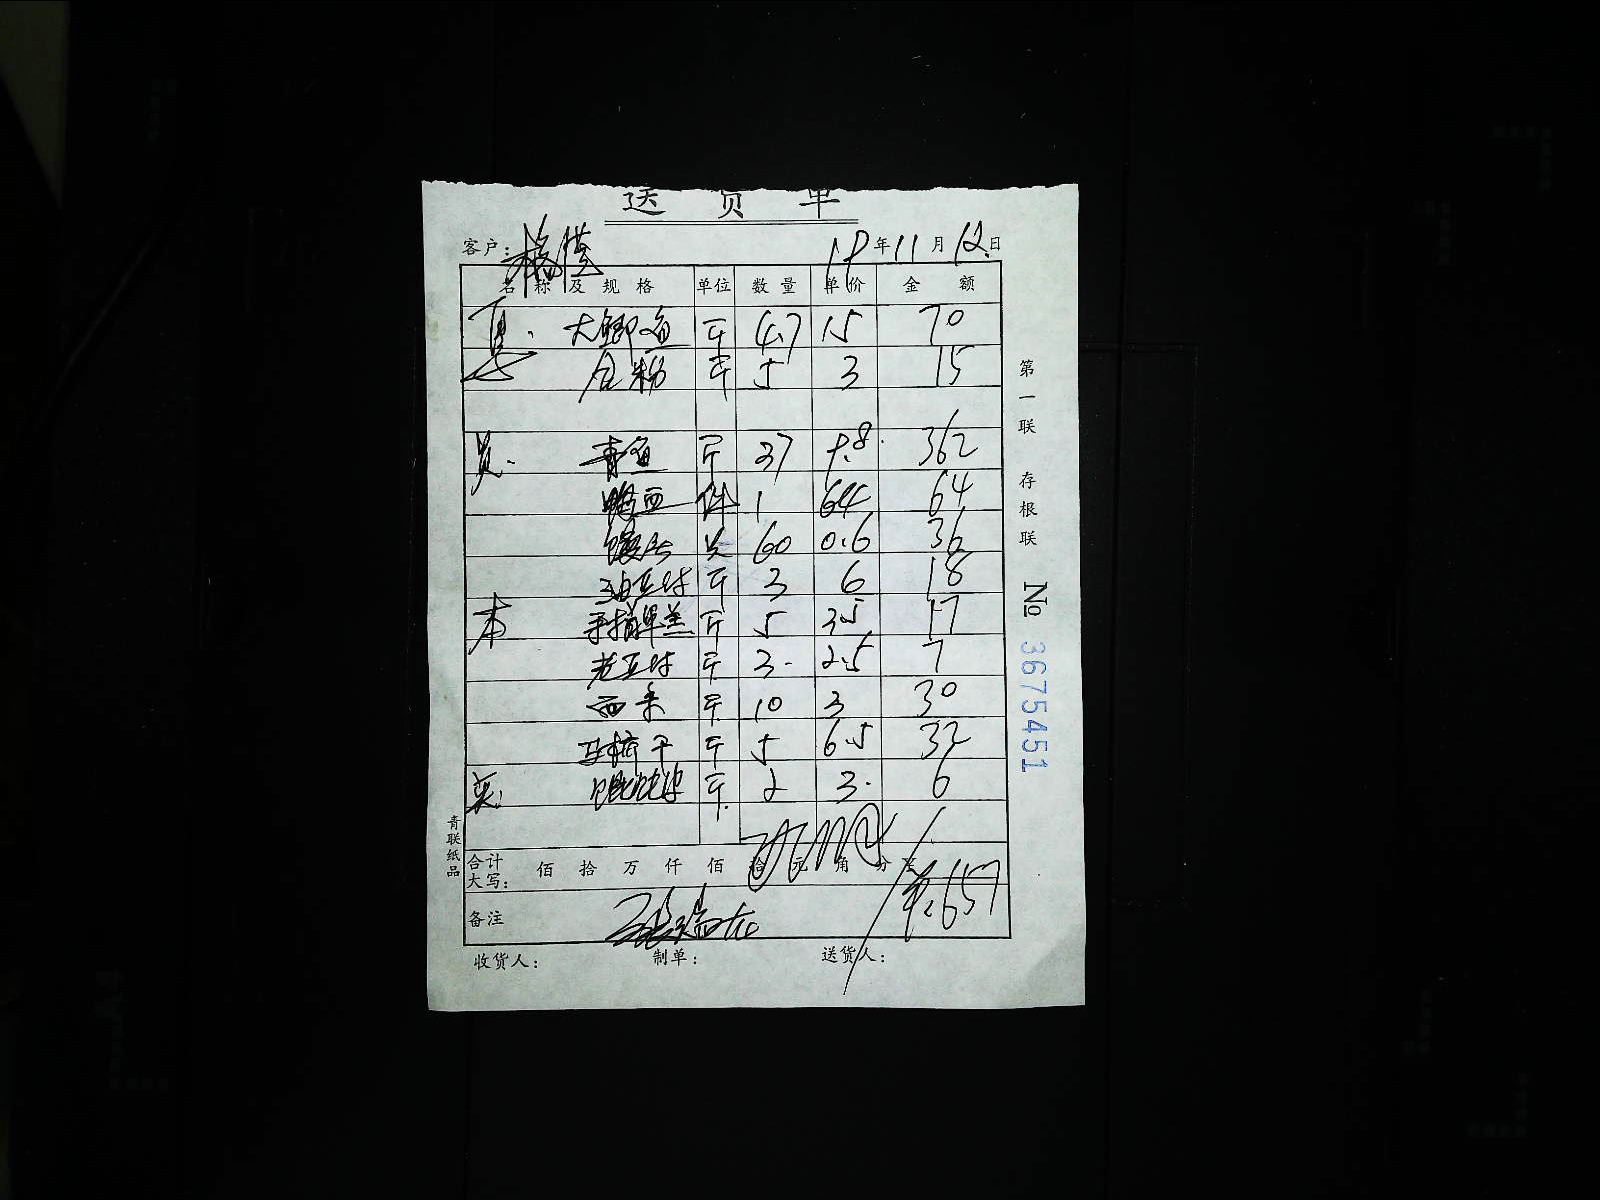 送货单
客户: 19年11月12日
名称及规格 单位 数量 单价 金额
大鲫鱼 斤 4.7 15 70
粉 斤 5 3 15
青鱼 斤 37 9.8 362
鸭血 件 1 64 64
馒头 只 60 0.6 36
油豆付 斤 3 6 18
斤 5 3.5 17
老豆付 斤 3. 2.5 7
西米 斤 10 3 30
干 斤 5 6.5 32
馄饨皮 斤 2 3. 6
合计
大写: 佰 拾 万 仟 佰 拾 元 角 分
657
备注
收货人: 制单: 送货人:
第一联 存根联
№ 3675451
青联纸品